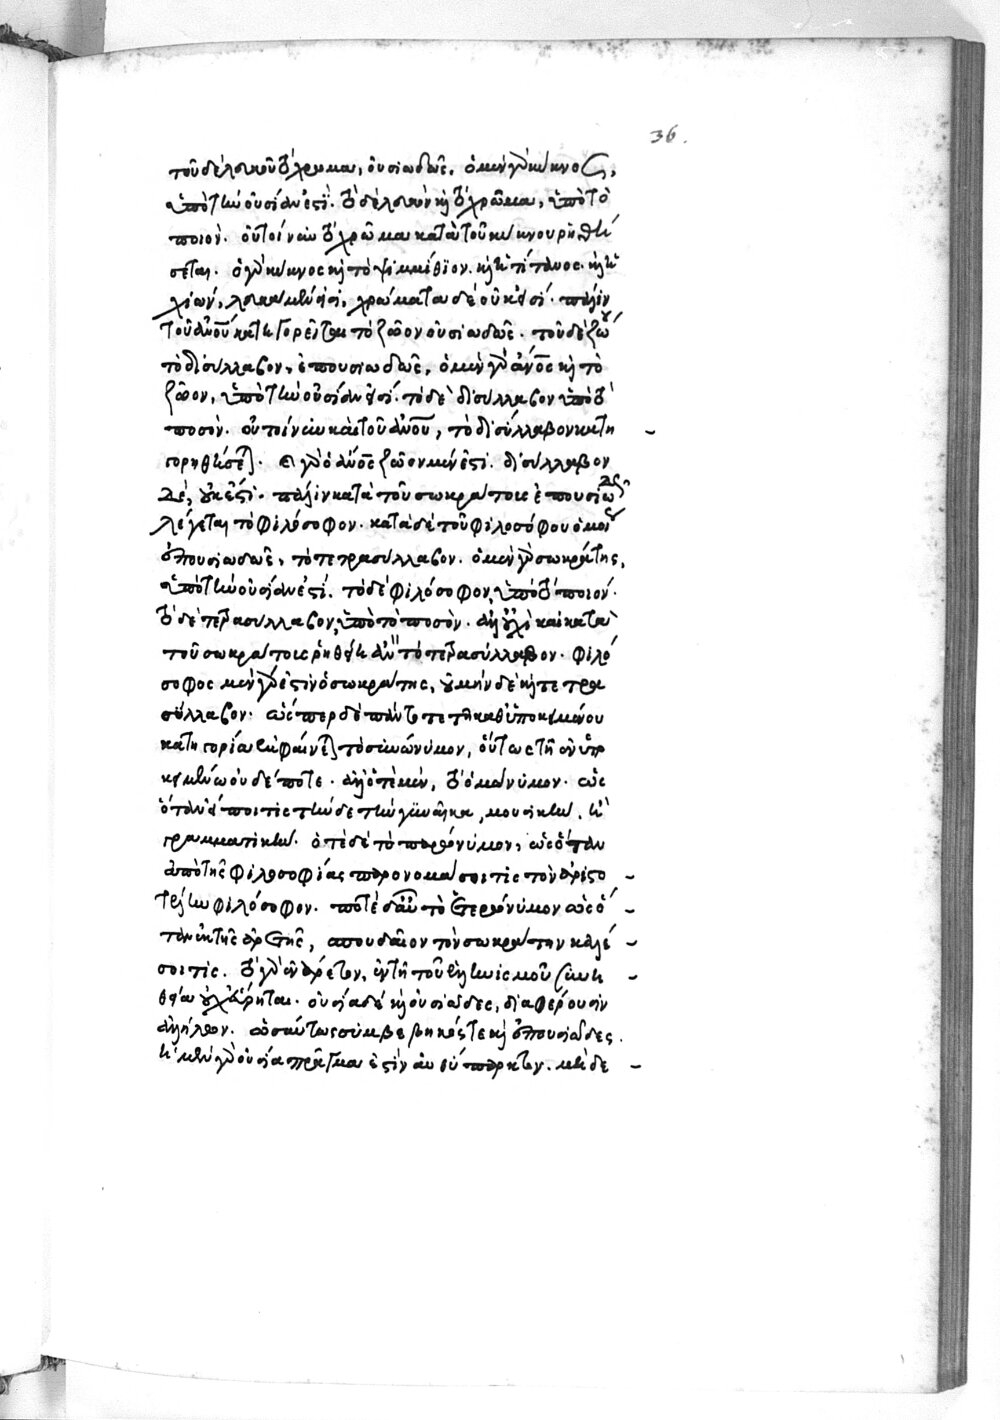 36.
τοῦ δὲ λευκοῦ τὸ χρῶμα, οὐσιωδῶς. ὁ μὲν γὰρ κύκνος,
ὑπὸ τὴν οὐσίαν ἐστί. τὸ δὲ λευκὸν καὶ τὸ χρῶμα, ὑπὸ τὸ
ποιόν. οὔτοι νῦν τὸ χρῶμα κατὰ τοῦ κύκνου ῥηθή
σεται. ὁ γὰρ κύκνος καὶ τὸ ψιμμίθιον. καὶ ἡ τίτανος. καὶ ἡ
χιών, λευκὰ μέν εἰσι, χρώματα δὲ οὔκ εἰσί. πάλιν
τοῦ ἀνθρώπου κατηγορεῖται τὸ ζῶον οὐσιωδῶς. τοῦ δὲ ζώου
τὸ δισύλλαβον, ἐπουσιωδῶς, ὁ μὲν γὰρ ἄνθρωπος καὶ τὸ
ζῶον, ὑπὸ τὴν οὐσίαν εἰσί. τὸ δὲ δισύλλαβον ὑπὸ τὸ
ποσόν. οὔτοι νῦν καὶ τοῦ ἀνθρώπου, τὸ δισύλλαβον κατη
γορηθήσεται. εἰ γὰρ ὁ ἄνθρωπος ζῶον μέν ἐστι. δισύλλαβον
δὲ, οὐκ ἔστι. πάλιν κατὰ τοῦ σωκράτους ἐπουσιωδῶς
λέγεται τὸ φιλόσοφον. κατὰ δὲ τοῦ φιλοσόφου ὁμοίως
ἐπουσιωδῶς, τὸ τετρασύλλαβον. ὁ μὲν γὰρ σωκράτης,
ὑπὸ τὴν οὐσίαν ἐστί. τὸ δὲ φιλόσοφον, ὑπὸ τὸ ποιόν.
τὸ δὲ τετρασύλλαβον, ὑπὸ τὸ ποσόν. ἀλλ' οὐχὶ καὶ κατὰ
τοῦ σωκράτους ῥηθείη ἂν τὸ τετρασύλλαβον. φιλό
σοφος μὲν γάρ ἐστιν ὁ σωκράτης, οὐ μὴν δὲ καὶ τετρα
σύλλαβον. ὥσπερ δὲ πάντοτε τῇ καθ' ὑποκειμένου
κατηγορίᾳ ἐμφαίνεται τὸ συνώνυμον, οὕτως τῇ ἐν ὑπο
κειμένῳ οὐδέποτε. ἀλλ' ὁτὲ μέν, τὸ ὁμώνυμον. ὡς
ὅταν εἴποι τις τήνδε τὴν γυναῖκα, μουσικήν, ἢ
γραμματικήν. ὁτὲ δὲ τὸ παρώνυμον, ὡς ὅταν
ἀπὸ τῆς φιλοσοφίας παρονομάσοι τις τὸν ἀριστο
τέλην φιλόσοφον. ποτὲ δ' αὖ τὸ ἑτερώνυμον ὡς ὅ
ταν ἐκ τῆς ἀρετῆς, σπουδαῖον τὸν σωκράτην καλέ
σοι τις. τὸ γὰρ ἐνάρετον, ἐν τῇ τοῦ ἑλληνισμοῦ συνη
θείᾳ οὐχ εὕρηται. οὐσία δὲ καὶ οὐσιῶδες, διαφέρουσιν
ἀλλήλων. ὡσαύτως συμβεβηκός τε καὶ ἐπουσιῶδες.
ἡ μὲν γὰρ οὐσία πρᾶγμα ἐστὶν αὐθύπαρκτον. μηδε